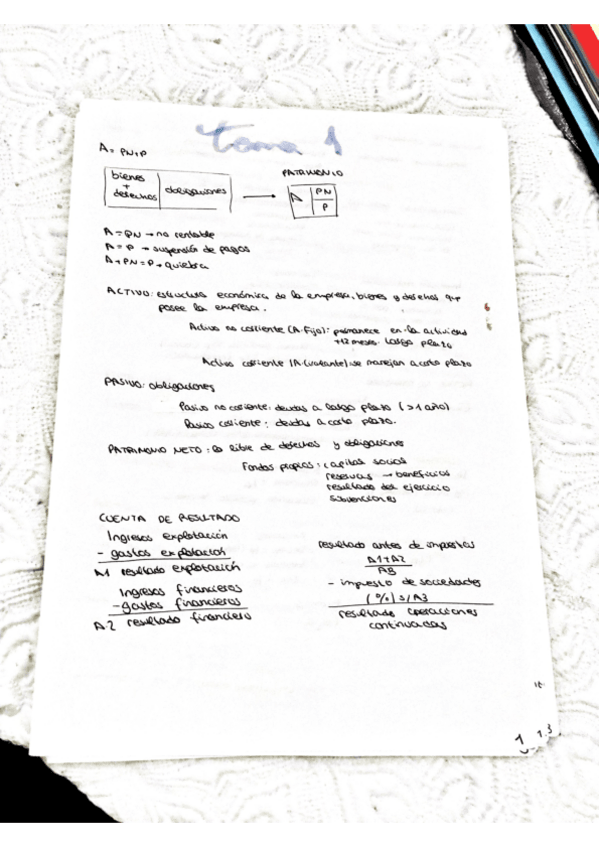 Tema 1
A = PN+P
bienes + derechos | obligaciones → PATRIMONIO A | PN P
A = PN → no rentable
A = P → suspensión de pagos
A + PN = P → quiebra
ACTIVO: estructura económica de la empresa, bienes y derechos que
posee la empresa.
Activo no corriente (A. Fijo): permanece en la actividad
+12 meses. Largo plazo
Activo corriente (A. Circulante) se manejan a corto plazo
PASIVO: obligaciones
Pasivo no corriente: deudas a largo plazo (>1 año)
Pasivo corriente: deudas a corto plazo.
PATRIMONIO NETO: lo libre de derechos y obligaciones
Fondos propios: capital social
reservas → beneficios
resultado del ejercicio
subvenciones
CUENTA DE RESULTADO
Ingresos explotación
- gastos explotación
A1 resultado explotación
Ingresos financieros
- gastos financieros
A2 resultado financiero
resultado antes de impuestos
A1+A2
A3
- impuesto de sociedades
(%) s/A3
resultado operaciones
continuadas
1
1.3